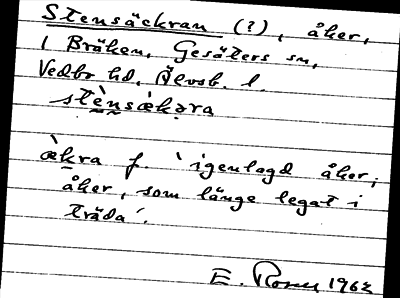 Stensäckran (?), åker,
1 Bräken, Gesäters sn,
Vedbo hd, Älvsb. l.
stènsæ̀kəra
æ̀kra f. 'igenlagd åker;
åker, som länge legat i
träda'.
E. 1962